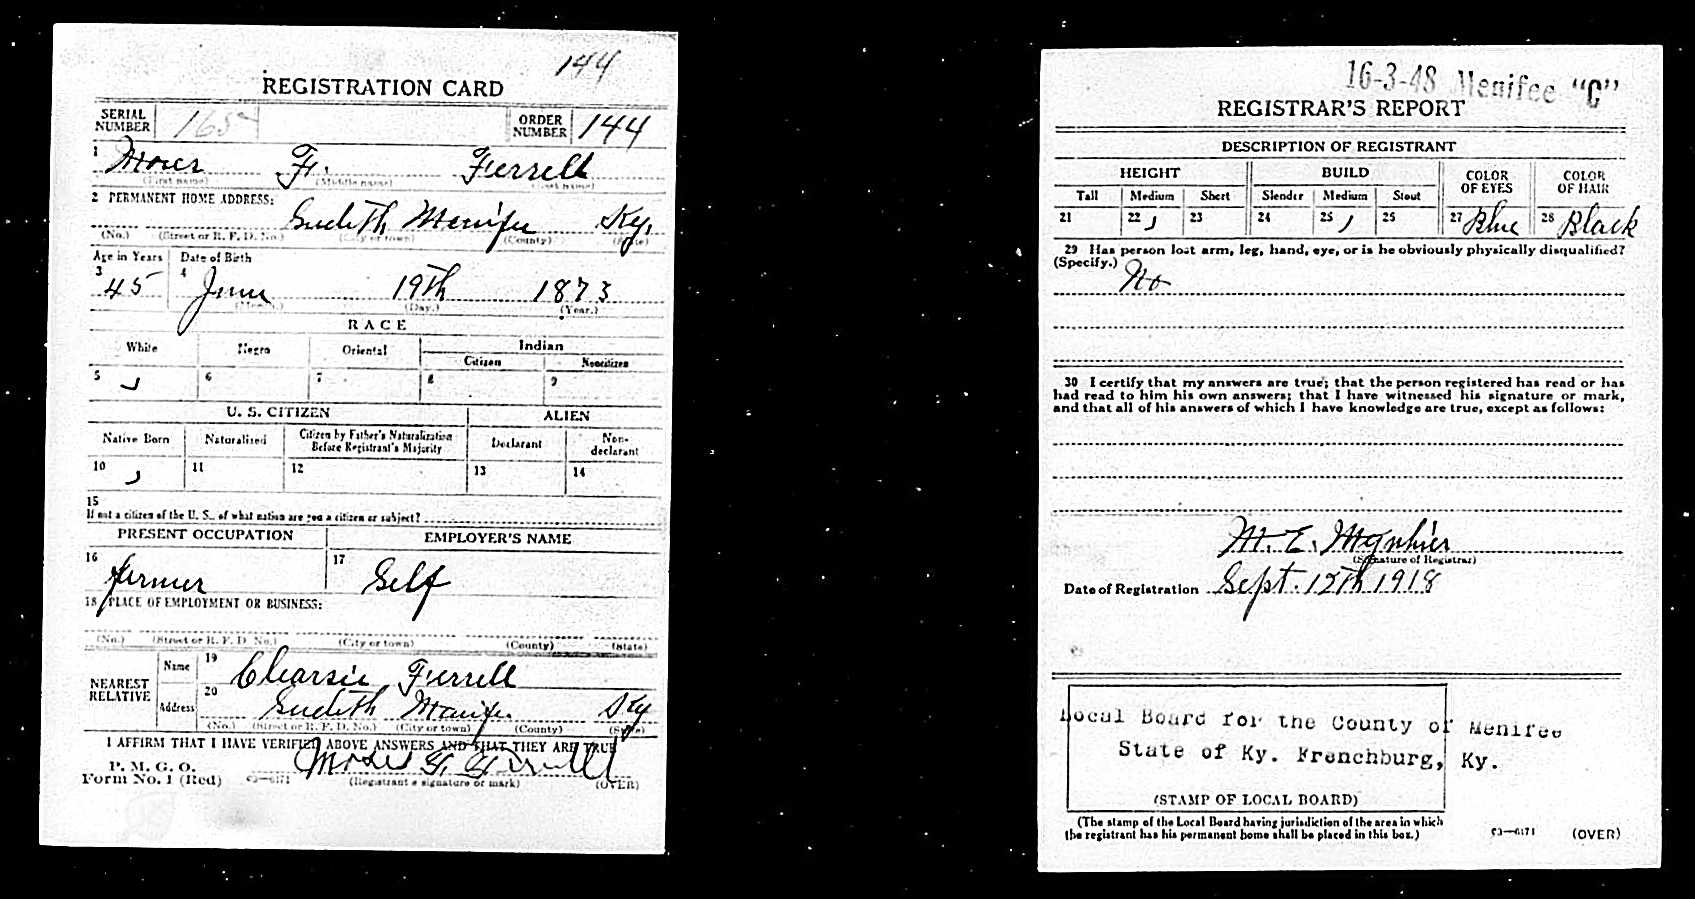 144
REGISTRATION CARD
SERIAL NUMBER 165 ORDER NUMBER 144
1 Moses F. Ferrell
(First name) (Middle name) (Last name)
2 PERMANENT HOME ADDRESS:
Sudith Menifee Ky.
(No.) (Street or R. F. D. No.) (City or town) (County) (State)
Age in Years Date of Birth
3 45 4 June 19th 1873
(Month.) (Day.) (Year.)
RACE
White Negro Oriental Indian
Citizen Noncitizen
5 6 7 8 9
U. S. CITIZEN ALIEN
Native Born Naturalized Citizen by Father's Naturalization Before Registrant's Majority Declarant Non-declarant
10 11 12 13 14
15
If not a citizen of the U. S., of what nation are you a citizen or subject?
PRESENT OCCUPATION EMPLOYER'S NAME
16 farmer 17 Self
18 PLACE OF EMPLOYMENT OR BUSINESS:
(No.) (Street or R. F. D. No.) (City or town) (County) (State)
NEAREST RELATIVE Name 19 Clearsie Ferrell
Address 20 Sudith Menife. Ky
(No.) (Street or R. F. D. No.) (City or town) (County) (State)
I AFFIRM THAT I HAVE VERIFIED ABOVE ANSWERS AND THAT THEY ARE TRUE
P. M. G. O.
Form No. 1 (Red) 03—6171 Moses F. Ferrell
(Registrant's signature or mark) (OVER)
16-3-48 Menifee "C"
REGISTRAR'S REPORT
DESCRIPTION OF REGISTRANT
HEIGHT BUILD COLOR OF EYES COLOR OF HAIR
Tall Medium Short Slender Medium Stout
21 22 23 24 25 26 27 Blue 28 Black
29 Has person lost arm, leg, hand, eye, or is he obviously physically disqualified?
(Specify.) No
30 I certify that my answers are true; that the person registered has read or has
had read to him his own answers; that I have witnessed his signature or mark,
and that all of his answers of which I have knowledge are true, except as follows:
M. E. Mynhier
(Signature of Registrar)
Date of Registration Sept. 12th 1918
Local Board for the County of Menifee
State of Ky. Frenchburg, Ky.
(STAMP OF LOCAL BOARD)
(The stamp of the Local Board having jurisdiction of the area in which
the registrant has his permanent home shall be placed in this box.)
03—6171 (OVER)